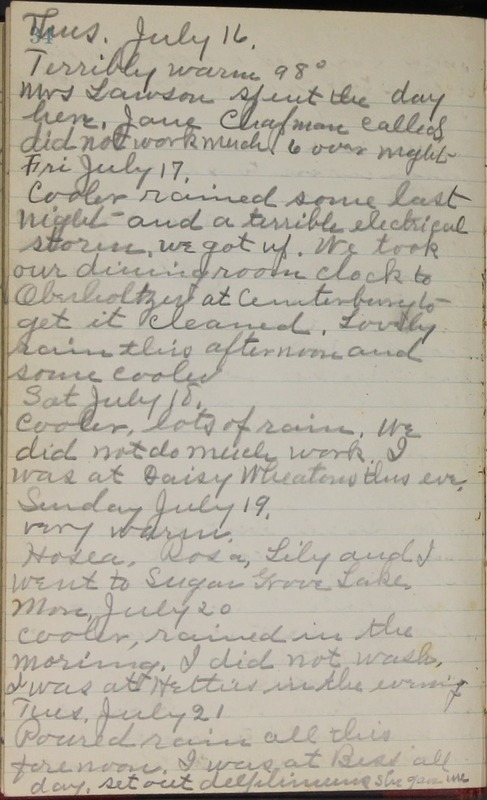 34
Thus. July 16.
Terribly warm 98°
Mrs Lawson spent the day
here. Jane Chapman called
did not work much. 6 over night
Fri July 17.
Cooler rained some last
night and a terrible electrical
storm, we got up. We took
our diningroom clock to
Oberholtzer at Centerburg to
get it cleaned. Lovely
rain this afternoon and
some cooler
Sat July 18.
Cooler, lots of rain. We
did not do much work. I
was at Daisy Wheatons this eve.
Sunday July 19.
very warm.
Hosea, Rosa, Lily and I
went to Sugar Grove Lake.
Mon, July 20
cooler, rained in the
morning. I did not wash.
I was at Hetties in the evening
Tues. July 21
Poured rain all this
forenoon. I was at Bess' all
day. set out delphiniums she gave me